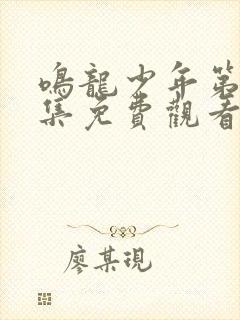 鳴龍少年第
集免費觀看
廖某現